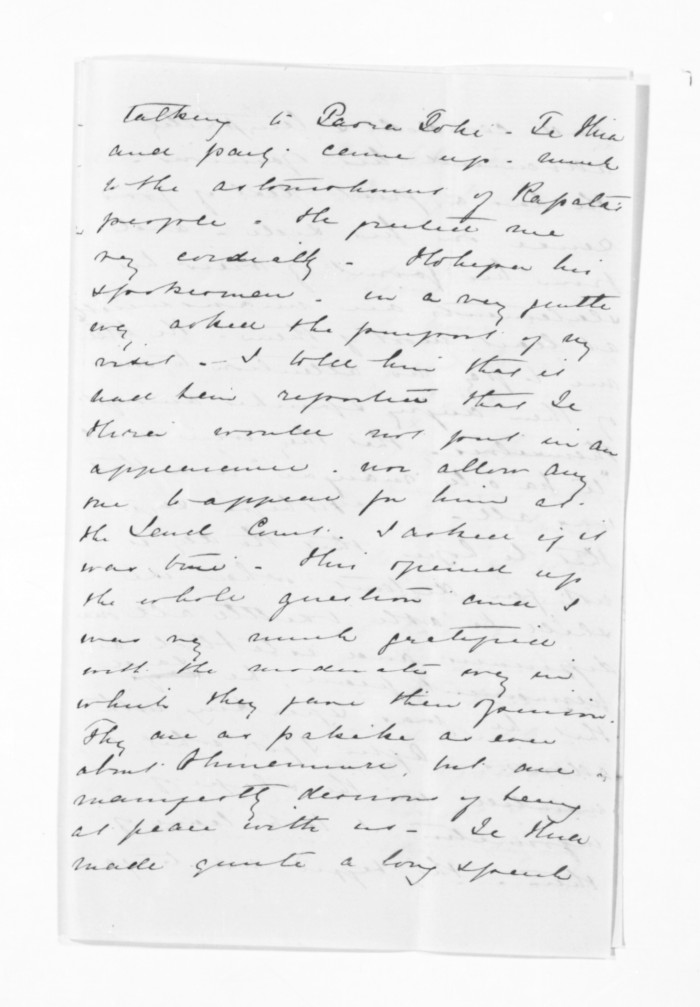 talking to Paora Toki - Te Hira
and party came up - much
to the astonishment of Rapata's
people - He greeted me
very cordially - Hohepa his
spokesman - in a very gentle
way asked the purport of my
visit - I told him that it
had been reported that Te
Hira would not put in an
appearance - nor allow any
one to appear for him at
the Land Court. I asked if it
was true - This opened up
the whole question and I
was very much gratified
with the moderate way in
which they gave their opinion.
They are as pakeke as ever
about Ohinemuri, but are
manifestly desirous of being
at peace with us - Te Hira
made quite a long speech